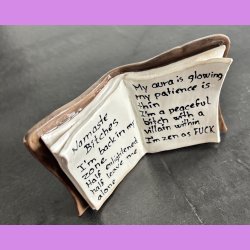 Namaste
Bitches
I'm back in my
zone
Half enlightened
half leave me
alone
My aura is glowing
my patience is
thin
I'm a peaceful
bitch with a
villain within
I'm zen as FUCK